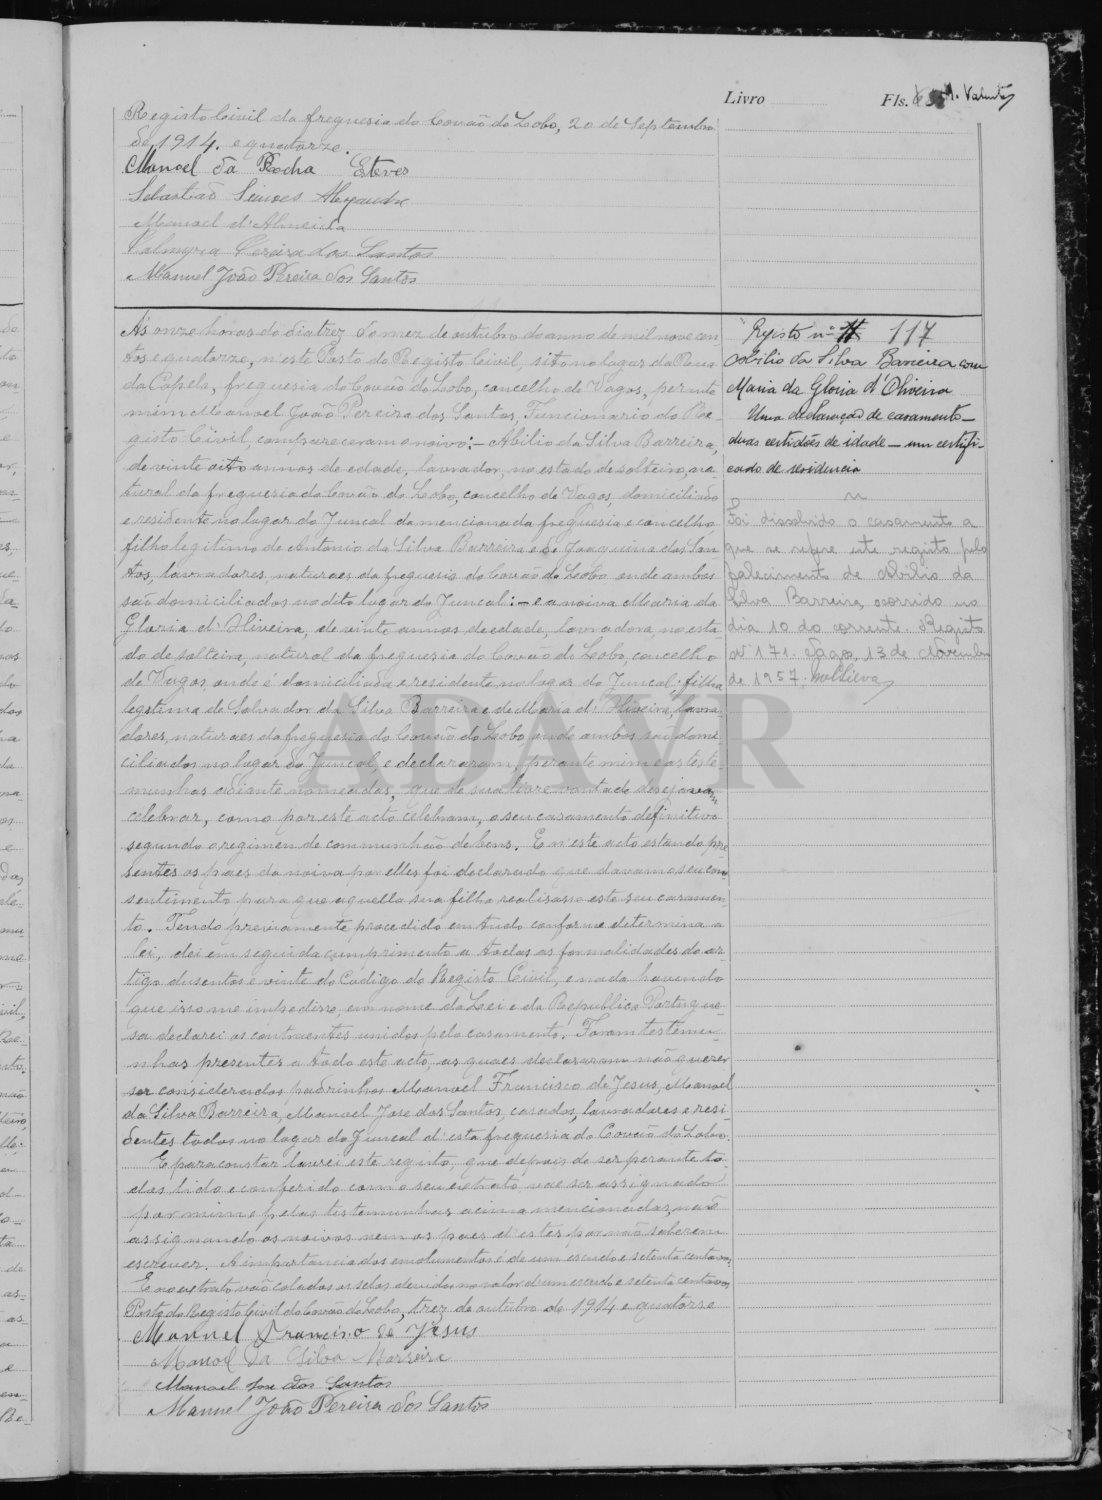 Livro Fls. M. Valente
Registo Civil da freguesia do Covão do Lobo, 20 de Septembro
de 1914. e quatorze.
Manoel da Rocha Esteves
Sebastião Simoes Alexandre
Manoel d'Almeida
Palmyra Pereira dos Santos
Manuel João Pereira dos Santos
Ás onze horas do dia trez do mez de outubro do anno de mil nove cen
tos e quatorze, n'este Posto do Registo Civil, sito no lugar da
da Capela, freguesia do Covão do Lobo, concelho de Vagos, perante
mim Manoel João Pereira dos Santos, Funcionario do Re-
gisto Civil, compareceram o noivo:- Abilio da Silva Barreira,
de vinte oito annos de edade, lavrador, no estado de solteiro, na
tural da freguesia do Covão do Lobo, concelho de Vagos, domiciliado
e residente no lugar do Juncal da mencionada freguesia e concelho
filho legitimo de Antonio da Silva Barreira e de Joaquina dos San
tos, lavradores, naturaes da freguesia do Covão do Lobo onde ambos
são domiciliados no dito lugar do Juncal:- e a noiva Maria da
Gloria d'Oliveira, de vinte annos de edade, lavradora, no esta
do de solteira, natural da freguesia do Covão do Lobo, concelho
de Vagos, onde é domiciliada e residente, no lugar do Juncal; filha
legitima de Salvador da Silva Barreira e de Maria d'Oliveira, lavra-
dores, naturaes da freguesia do Covão do Lobo onde ambos são domi
ciliados no lugar do Juncal, e declararam, perante mim e as teste-
munhas adiante nomeadas, que de sua livre vontade desejavam
celebrar, como por este acto celebram, o seu casamento definitivo
segundo o regimen de communhão de bens. E n'este acto estando pre
sentes os paes da noiva por elles foi declarado que davam o seu con
sentimento para que aquella sua filha realisasse este seu casamen-
to. Tendo previamente procedido em tudo conforme determina a
lei, dei em seguida cumprimento a todas as formalidades do ar-
tigo dusentos e vinte do Codigo do Registo Civil, e nada havendo
que isso me impedisse, em nome da Lei e da Republica Portugue-
sa declarei os contraentes unidos pelo casamento. Foram testemu-
nhas presentes a todo este acto, as quaes declararam não querer
ser considerados padrinhos Manoel Francisco de Jesus, Manoel
da Silva Barreira, Manoel Jose dos Santos, casados, lavradores e resi
dentes todos no lugar do Juncal d'esta freguesia do Covão do Lobo.
E para constar lavrei este registo, que depois de ser perante to-
dos lido e conferido com o seu extrato, vae ser assignado
por mim e pelas testemunhas acima mencionadas, não
assignando os noivos nem os paes d'estes por não saberem
escrever. A importancia dos emolumentos é de um escudo e setenta centavos.
E no extrato vão colados os selos devidos no valor d'um escudo e setenta centavos
Posto do Registo Civil do Covão do Lobo, trez de outubro de 1914 e quatorse
Manuel Francisco de Jesus
Manoel da Silva Barreira
Manoel Jose dos Santos
Manuel João Pereira dos Santos
Registo nº 117
Abilio da Silva Barreira com
Maria da Gloria d'Oliveira
Uma declaração de casamento -
duas certidões de idade - um certifi-
cado de residencia
Foi dissolvido o casamento a
que se refere este registo pelo
falecimento de Abilio da
Silva Barreira, ocorrido no
dia 10 do corrente. Registo
Nº 171. Vagos, 13 de Novembro
de 1957.
ADAVR